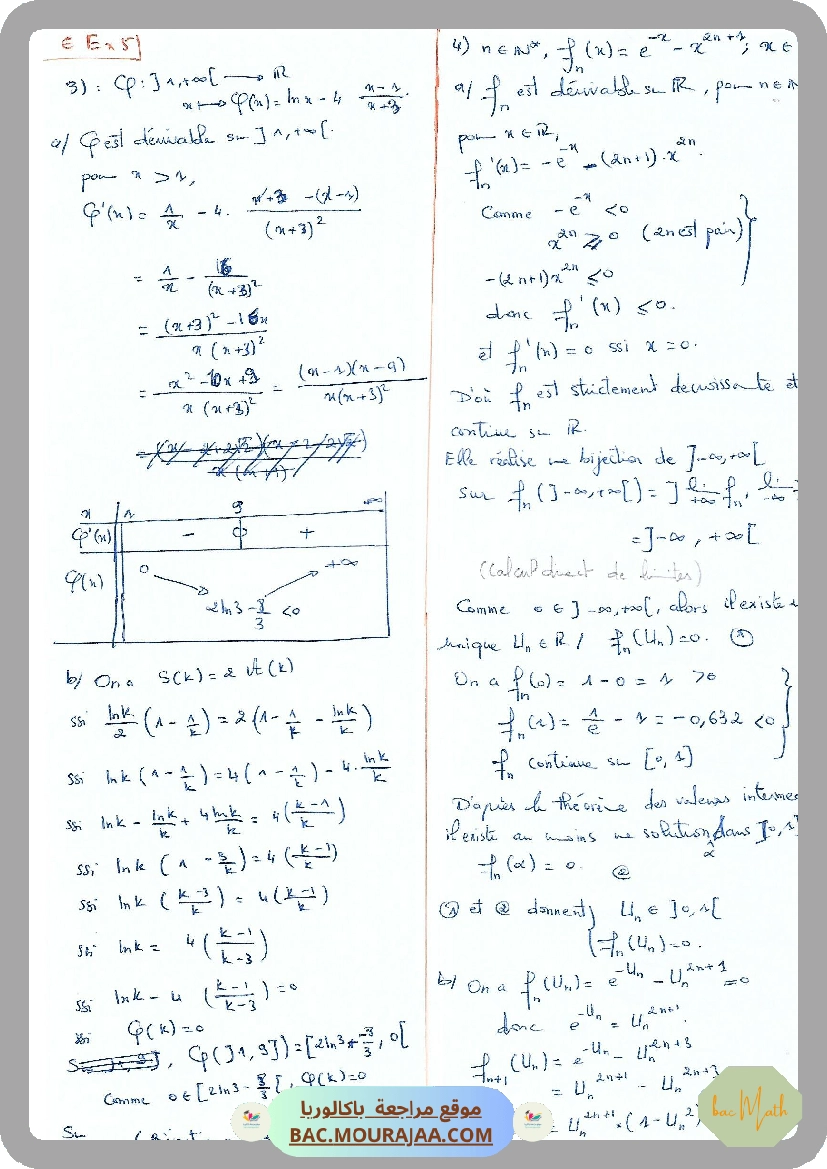 Ex 5]
3) : φ : ]1,+∞[ ⟶ ℝ
x ⟼ φ(x) = ln x - 4 (x-1)/(x+3).
a/ φ est dérivable sur ]1,+∞[.
pour x > 1,
φ'(x) = 1/x - 4. (x+3 -(x-1))/(x+3)²
= 1/x - 16/(x+3)²
= ((x+3)² - 16x)/(x(x+3)²)
= (x² - 10x + 9)/(x(x+3)²) = ((x-1)(x-9))/(x(x+3)²)
x 1 9 +∞
φ'(x) - 0 +
φ(x) 0 2ln3 - 8/3 <0 +∞
b/ On a S(k) = 2 A(k)
ssi lnk/2 (1 - 1/k) = 2(1 - 1/k - lnk/k)
ssi lnk (1 - 1/k) = 4(1 - 1/k) - 4. lnk/k
ssi lnk - lnk/k + 4lnk/k = 4((k-1)/k)
ssi lnk (1 - 3/k) = 4((k-1)/k)
ssi lnk ((k-3)/k) = 4((k-1)/k)
ssi lnk = 4((k-1)/(k-3))
ssi lnk - 4((k-1)/(k-3)) = 0
ssi φ(k) = 0
, φ(]1,9]) = [2ln3 - 8/3, 0[
Comme 0 ∈ [2ln3 - 8/3 [, φ(k)=0
4) n ∈ ℕ*, fn(x) = e^(-x) - x^(2n+1) ; x ∈
a/ fn est dérivable su ℝ, pour n ∈ ℕ
pour x ∈ ℝ,
fn'(x) = -e^(-x) - (2n+1).x^(2n).
Comme -e^(-x) < 0
x^(2n) ⩾ 0 (2n est pair)
-(2n+1)x^(2n) ≤ 0
donc fn'(x) ≤ 0.
et fn'(x) = 0 ssi x = 0.
D'où fn est strictement decroissante et
continue su ℝ.
Elle réalise une bijection de ]-∞,+∞[
sur fn(]-∞,+∞[) = ]lim +∞ fn, lim -∞
= ]-∞, +∞[
(calcul direct de limites)
Comme 0 ∈ ]-∞,+∞[, alors il existe
unique Un ∈ ℝ / fn(Un)=0. ①
On a fn(0) = 1 - 0 = 1 > 0
fn(1) = 1/e - 1 = -0,632 < 0
fn continue su [0,1]
D'après le théorème des valeurs interme
il existe au moins une solution α dans ]0,1[
fn(α) = 0. ②
① et ② donnent { Un ∈ ]0,1[
fn(Un) = 0.
b/ On a fn(Un) = e^(-Un) - Un^(2n+1) = 0
donc e^(-Un) = Un^(2n+1).
fn+1(Un) = e^(-Un) - Un^(2n+3)
= Un^(2n+1) - Un^(2n+3)
= Un^(2n+1).(1 - Un²)
موقع مراجعة باكالوريا
BAC.MOURAJAA.COM
bac Math